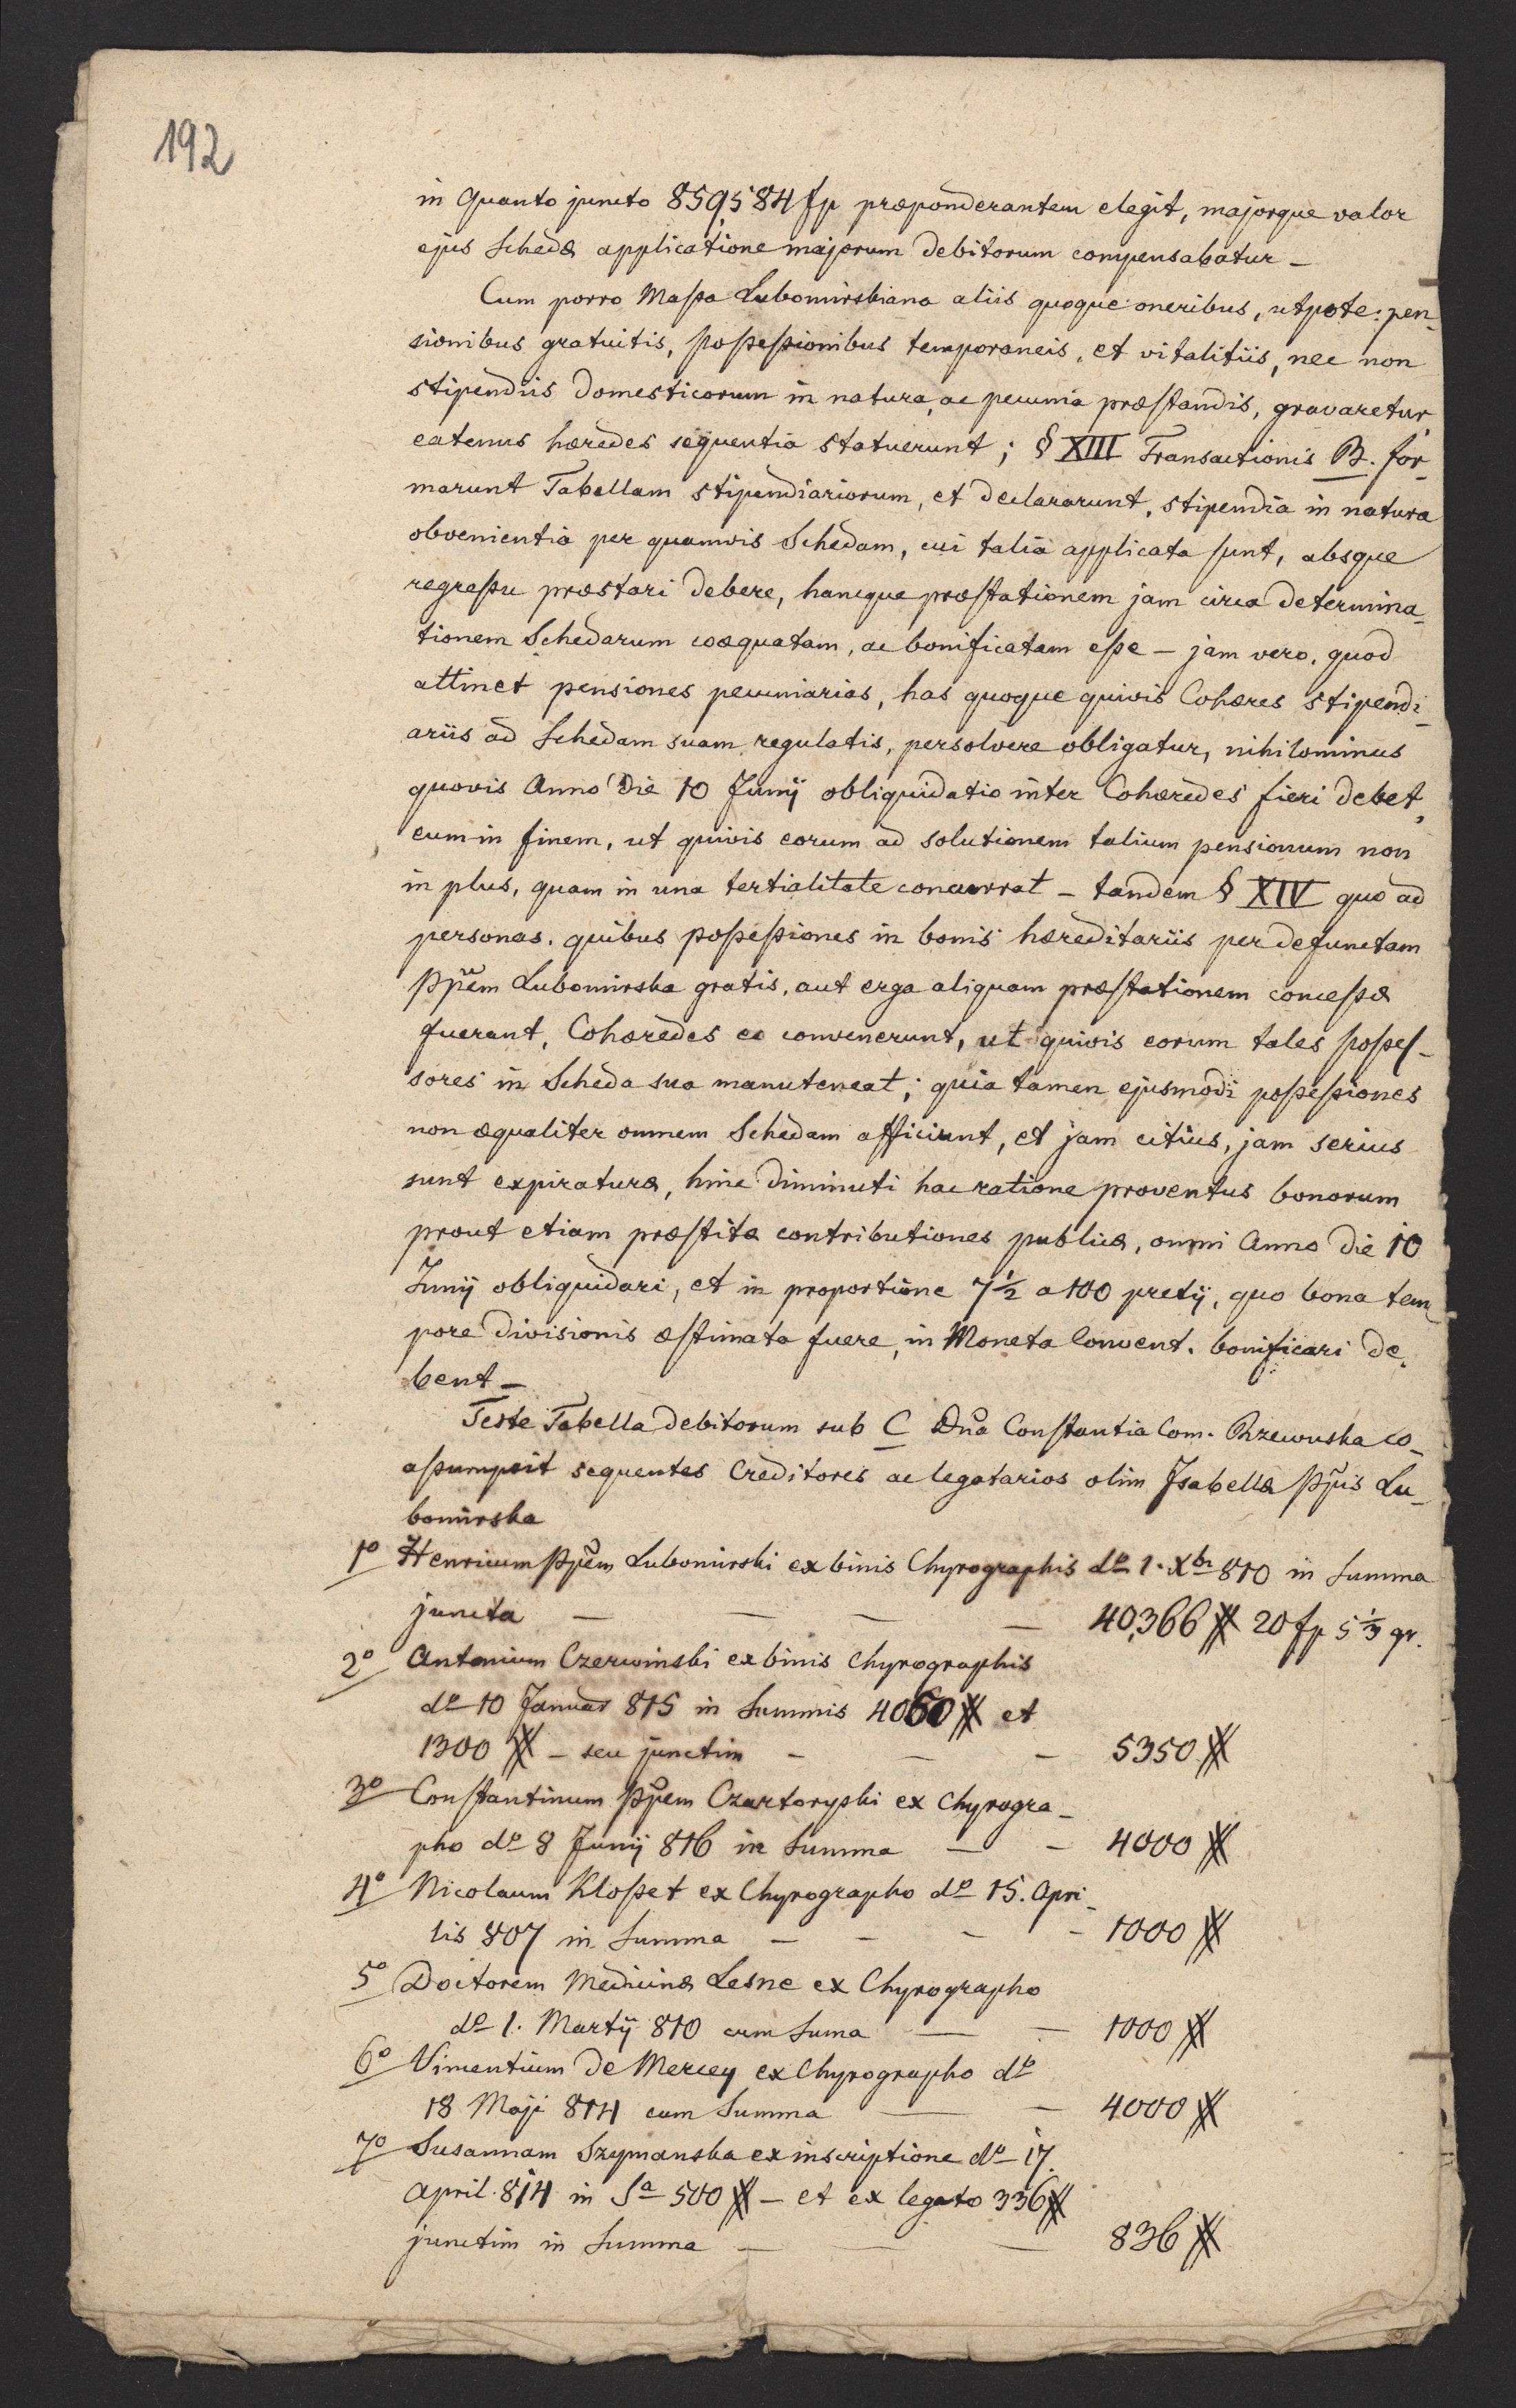 192
in quanto juncto 859,584 fp præponderantem elegit, majorque valor
ejus Schedæ applicatione majorum debitorum compensabatur –
Cum porro Massa Lubomirskiana aliis quoque oneribus, utpote: pen-
sionibus gratuitis, possessionibus temporaneis, et vitalitiis, nec non
stipendiis domesticorum in natura, ac pecunia præstandis, gravaretur,
eatenus hæredes sequentia statuerunt; § XIII Transactionis B. for-
marunt Tabellam stipendiariorum, et declararunt, stipendia in natura
obvenientia per quamvis Schedam, cui talia applicata sunt, absque
regressu præstari debere, hancque præstationem jam circa determina-
tionem Schedarum coæquatam, ac bonificatam esse – jam vero, quod
attinet pensiones pecuniarias, has quoque quivis Cohæres stipendi-
ariis ad Schedam suam regulatis, persolvere obligatur, nihilominus
quovis Anno die 10 Junÿ obliquidatio inter Cohæredes fieri debet,
eum in finem, ut quivis eorum ad solutionem talium pensionum non
in plus, quam in una tertialitate concurrat – tandem § XIV quo ad
personas, quibus possessiones in bonis hæreditariis per defunctam
Ppem Lubomirska gratis, aut erga aliquam præstationem concessæ
fuerant, Cohæredes eo convenerunt, ut quivis eorum tales posses-
sores in Scheda sua manuteneat; quia tamen ejusmodi possessiones
non æqualiter omnem Schedam afficiunt, et jam citius, jam serius
sunt expiraturæ, hinc diminuti hac ratione proventus bonorum
prout etiam præstitæ contributiones publicæ, omni Anno die 10
Junÿ obliquidari, et in proportione 7½ a 100 pretÿ, quo bona tem-
pore divisionis æstimata fuere, in Moneta Convent. bonificari de-
bent –
Teste Tabella debitorum sub C Dna Constantia Com. Rzewuska co-
assumpsit sequentes Creditores ac legatarios olim Isabellæ Ppis Lu-
bomirska
1º Henricum Ppem Lubomirski ex binis Chyrographis dº 1. Xbr 810 in Summa
juncta — — — — 40,366 # 20 fp 5⅓ gr.
2º Antonium Czerwinski ex binis Chyrographis
dº 10 Januar 815 in Summis 4050 # et
1300 # – seu junctim – — – 5350 #
3º Constantinum Ppem Czartoryski ex Chyrogra-
pho dº 8 Junÿ 816 in Summa — – 4000 #
4º Nicolaum Klosset ex Chyrographo dº 15. Apri-
lis 807 in Summa – – – – 1000 #
5º Doctorem Medicinæ Lesne ex Chyrographo
dº 1. Martÿ 810 cum Suma — – 1000 #
6º Vincentium de Mercey ex Chyrographo dº
18 Maji 814 cum Summa — – 4000 #
7º Susannam Szymanska ex inscriptione dº 17.
April. 814 in Sª 500 # – et ex legato 336 #
junctim in Summa — — — 836 #